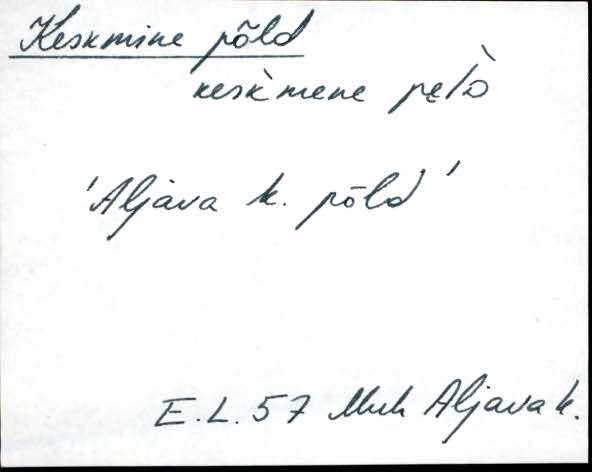 Keskmine põld
kesk̀mene pe̬l̀ᴅ
'Aljava k. põld'
E.L. 57 Muh Aljava k.